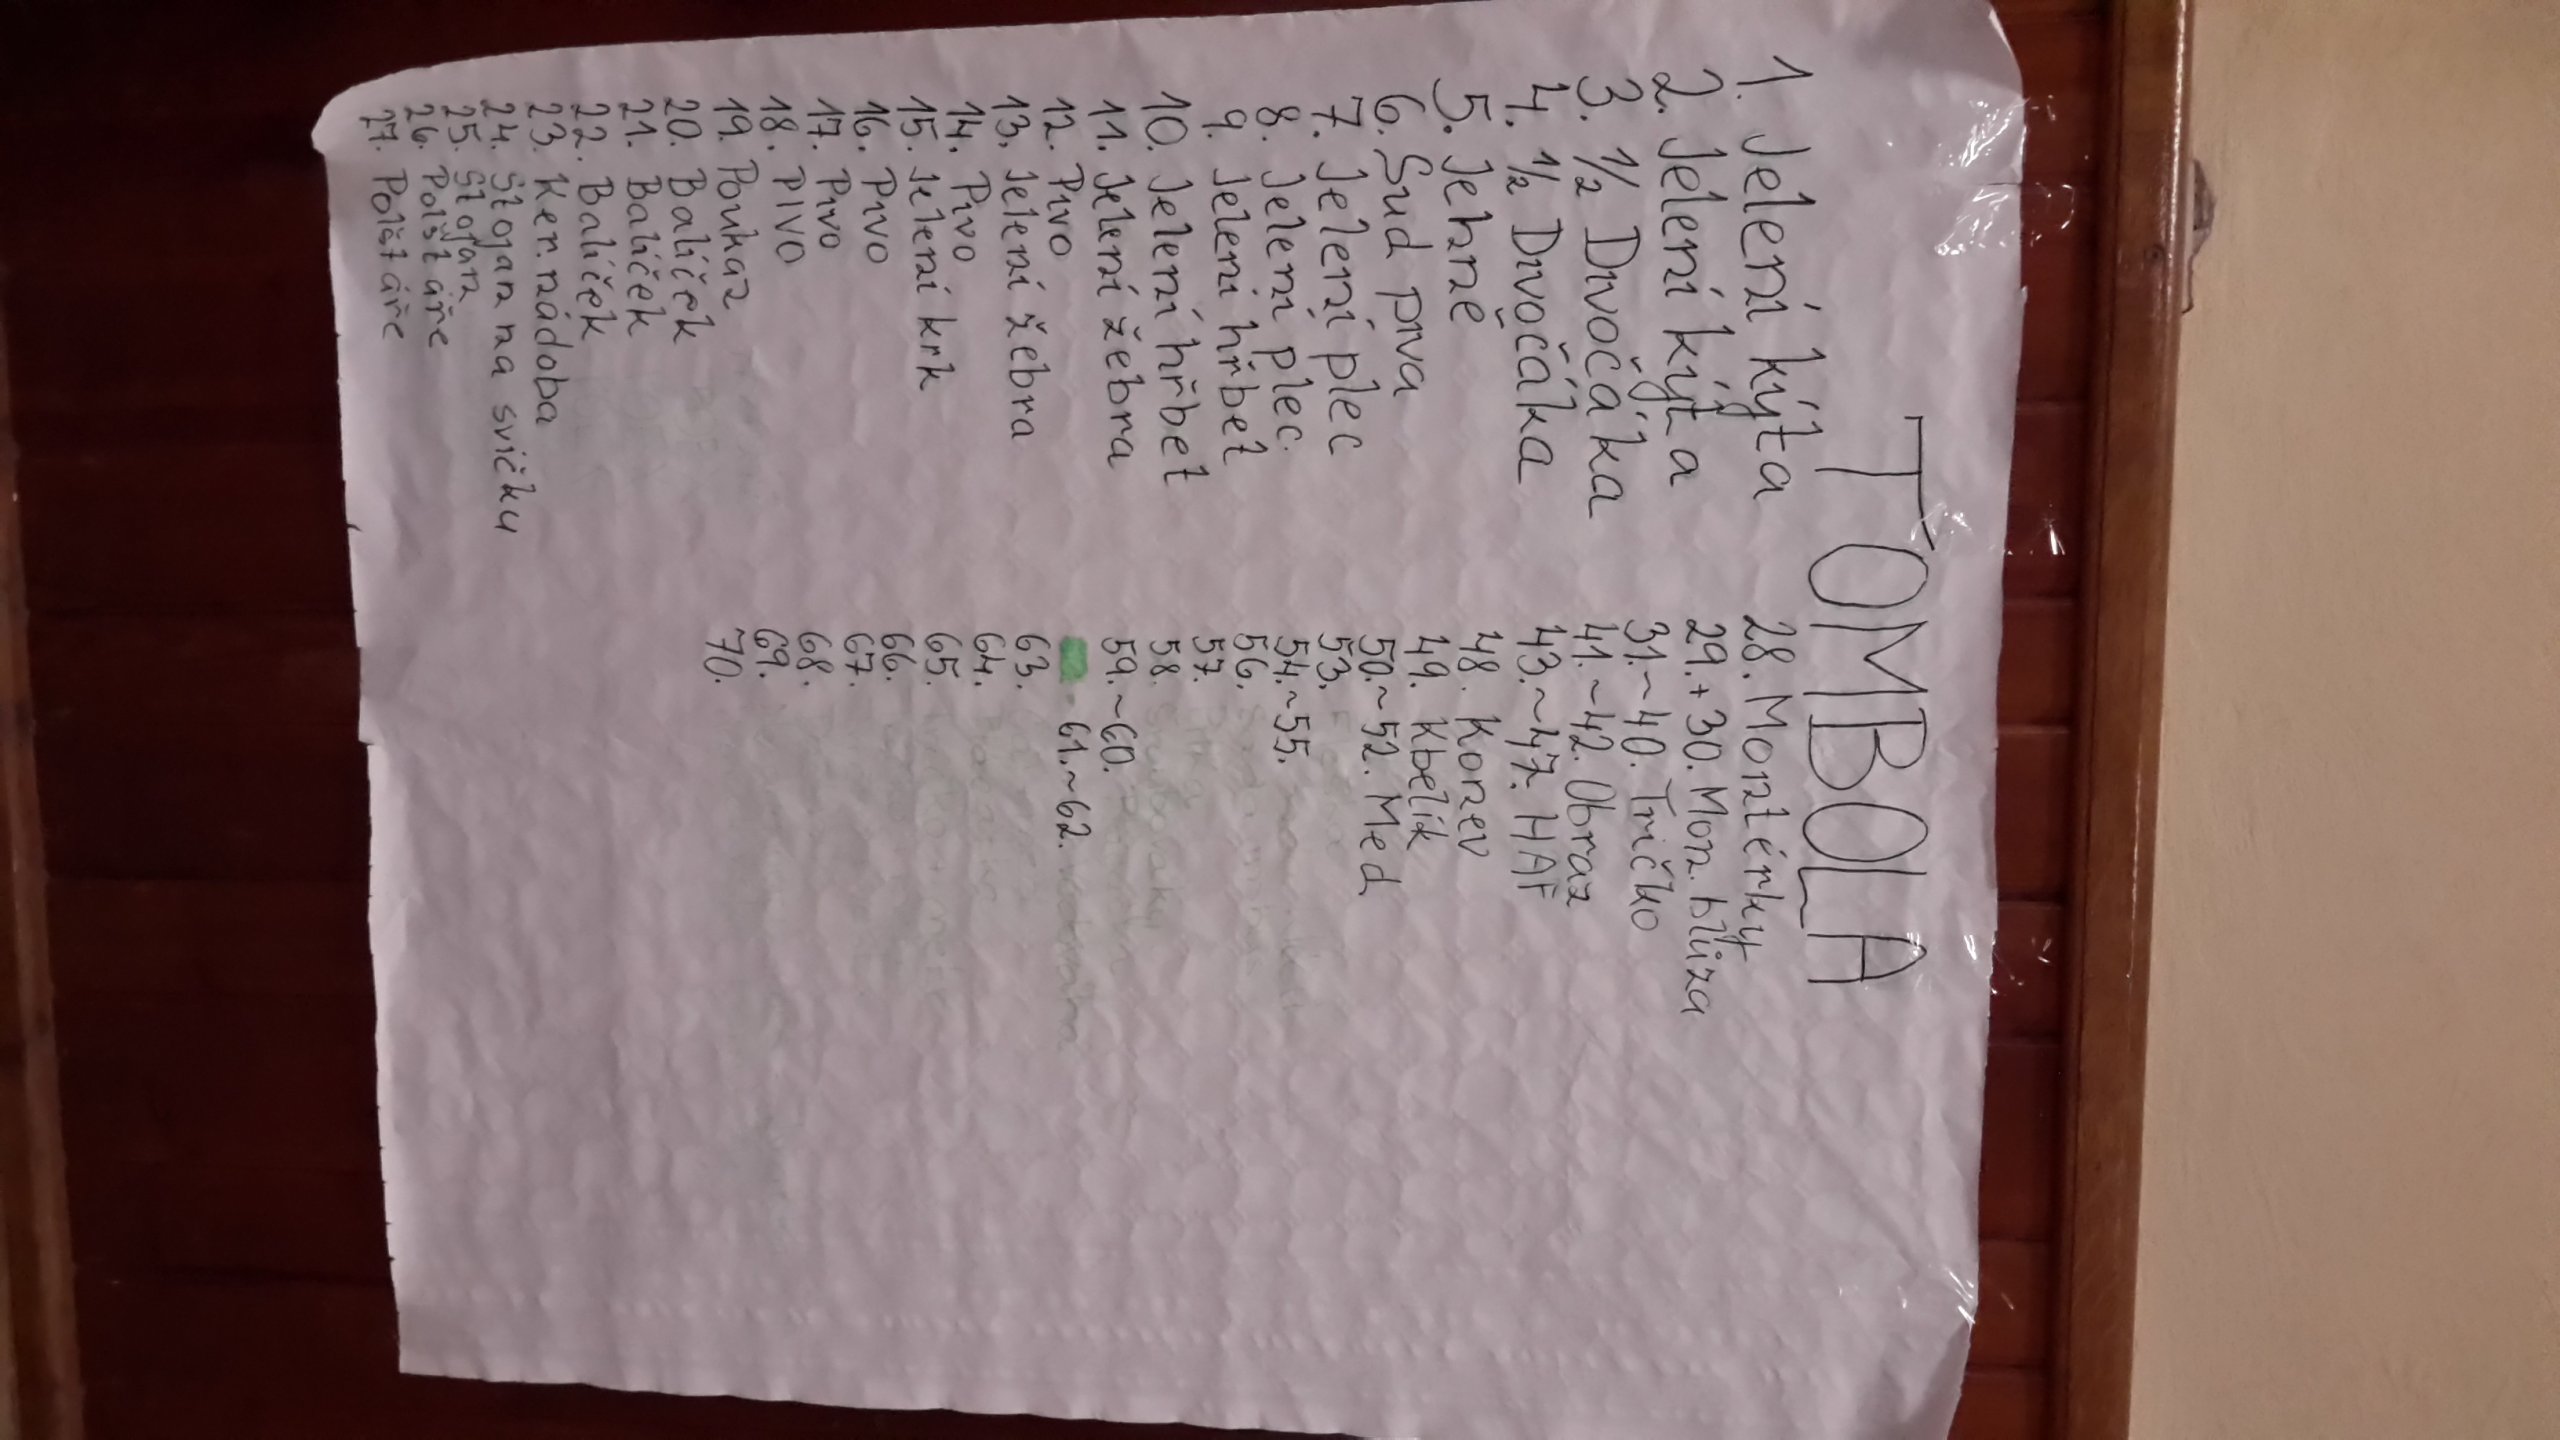 TOMBOLA
1. Jelení kýta
2. Jelení kýta
3. 1/2 Divočáka
4. 1/2 Divočáka
5. Jehně
6. Sud piva
7. Jelení plec
8. Jelení plec.
9. Jelení hřbet
10. Jelení hřbet
11. Jelení žebra
12. Pivo
13. Jelení žebra
14. Pivo
15. Jelení krk
16. Pivo
17. Pivo
18. PIVO
19. Poukaz
20. Balíček
21. Balíček
22. Balíček
23. Ker. nádoba
24. Stojan na svíčku
25. Stojan
26. Polštáře
27. Polštáře
28. Montérky
29. + 30. Mon. blůza
31. ~ 40. Tričko
41. ~ 42. Obraz
43. ~ 47. HAF
48. Konev
49. Kbelík
50. ~ 52. Med
53.
54. ~ 55.
56.
57.
58.
59. ~ 60.
61. ~ 62.
63.
64.
65.
66.
67.
68.
69.
70.